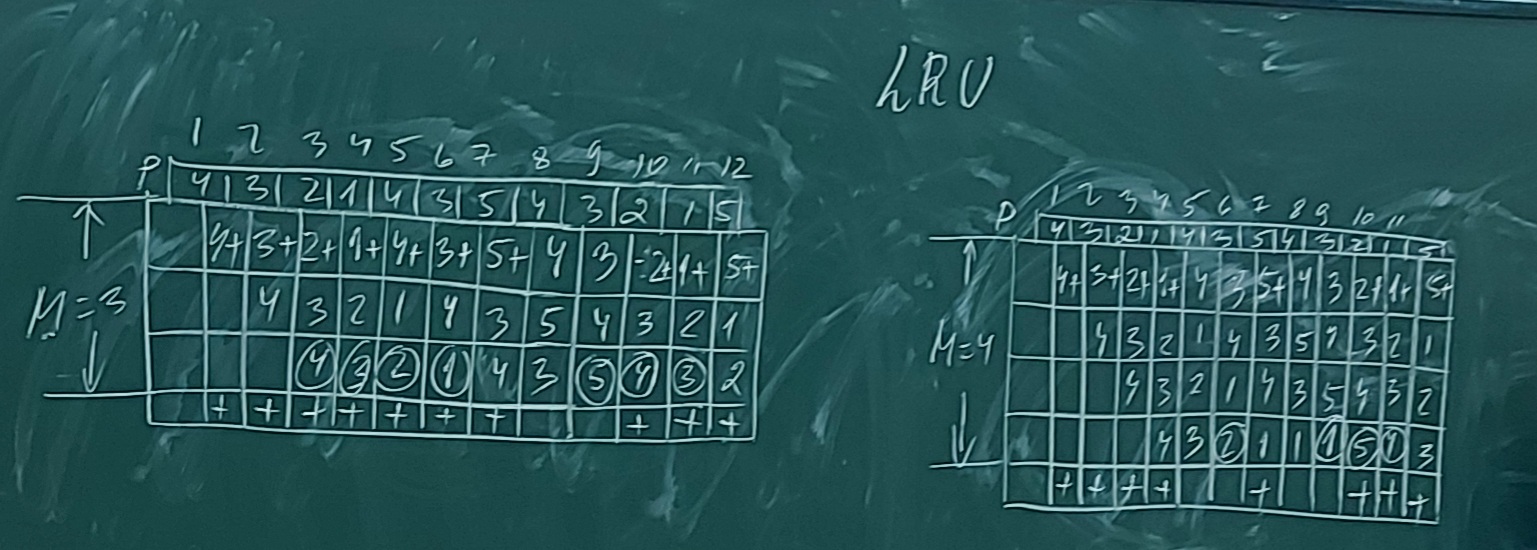 LRU
1 2 3 4 5 6 7 8 9 10 11 12
P 4 3 2 1 4 3 5 4 3 2 1 5
4+ 3+ 2+ 1+ 4+ 3+ 5+ 4 3 2+ 1+ 5+
M=3 4 3 2 1 4 3 5 4 3 2 1
4 3 2 1 4 3 5 4 3 2
+ + + + + + + + + +
1 2 3 4 5 6 7 8 9 10 11
P 4 3 2 1 4 3 5 4 3 2 1 5
4+ 3+ 2+ 1+ 4 3 5+ 4 3 2+ 1+ 5+
M=4 4 3 2 1 4 3 5 4 3 2 1
4 3 2 1 4 3 5 4 3 2
4 3 2 1 1 1 5 4 3
+ + + + + + + +